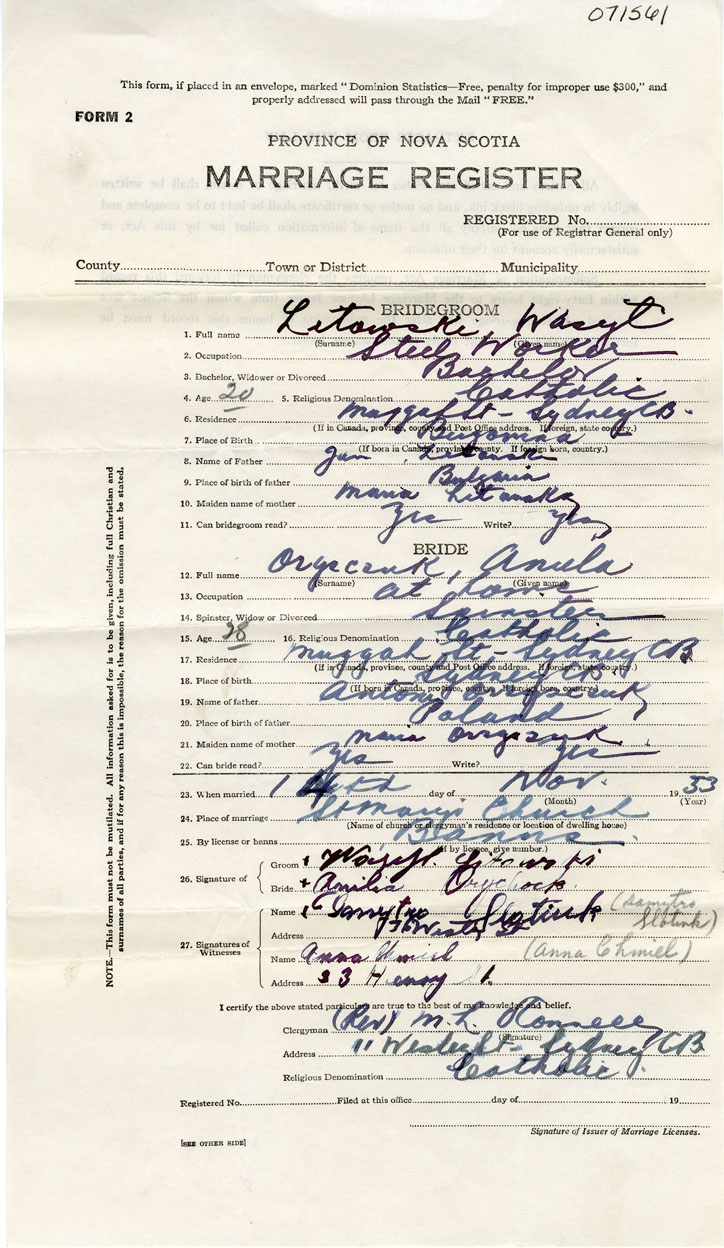 071561
This form, if placed in an envelope, marked "Dominion Statistics—Free, penalty for improper use $300," and
properly addressed will pass through the Mail "FREE."
FORM 2
PROVINCE OF NOVA SCOTIA
MARRIAGE REGISTER
REGISTERED No.
(For use of Registrar General only)
County Town or District Municipality
BRIDEGROOM
1. Full name Litowski, Wasyl
(Surname) (Given name)
2. Occupation Steel Worker
3. Bachelor, Widower or Divorced Bachelor
4. Age 20 5. Religious Denomination Catholic
6. Residence Muggah St - Sydney CB.
(If in Canada, province, county and Post Office address. If foreign, state country.)
7. Place of Birth
(If born in Canada, province, county. If foreign born, country.)
8. Name of Father
9. Place of birth of father
10. Maiden name of mother Maria
11. Can bridegroom read? Yes Write? Yes
BRIDE
12. Full name
(Surname) (Given name)
13. Occupation at home
14. Spinster, Widow or Divorced Spinster
15. Age 28 16. Religious Denomination Catholic
17. Residence Muggah St - Sydney CB.
(If in Canada, province, county and Post Office address. If foreign, state country.)
18. Place of birth Sydney CB.
(If born in Canada, province, county. If foreign born, country.)
19. Name of father
20. Place of birth of father Poland
21. Maiden name of mother Maria
22. Can bride read? Yes Write? Yes
23. When married day of Nov. 19 53
(Month) (Year)
24. Place of marriage St Mary's Church
(Name of church or clergyman's residence or location of dwelling house)
25. By license or banns Banns
(If by licence, give number.)
26. Signature of
Groom
Bride
27. Signatures of Witnesses
Name Dmytro Slotiuk (Damytro Slotiuk)
Address
Name Anna Chmiel (Anna Chmiel)
Address 33 Henry St.
I certify the above stated particulars are true to the best of my knowledge and belief.
Clergyman (Rev) M. L.
(Signature)
Address Sydney CB
Religious Denomination Catholic.
Registered No. Filed at this office day of 19
Signature of Issuer of Marriage Licenses.
[SEE OTHER SIDE]
NOTE.—This form must not be mutilated. All information asked for is to be given, including full Christian and
surnames of all parties, and if for any reason this is impossible, the reason for the omission must be stated.